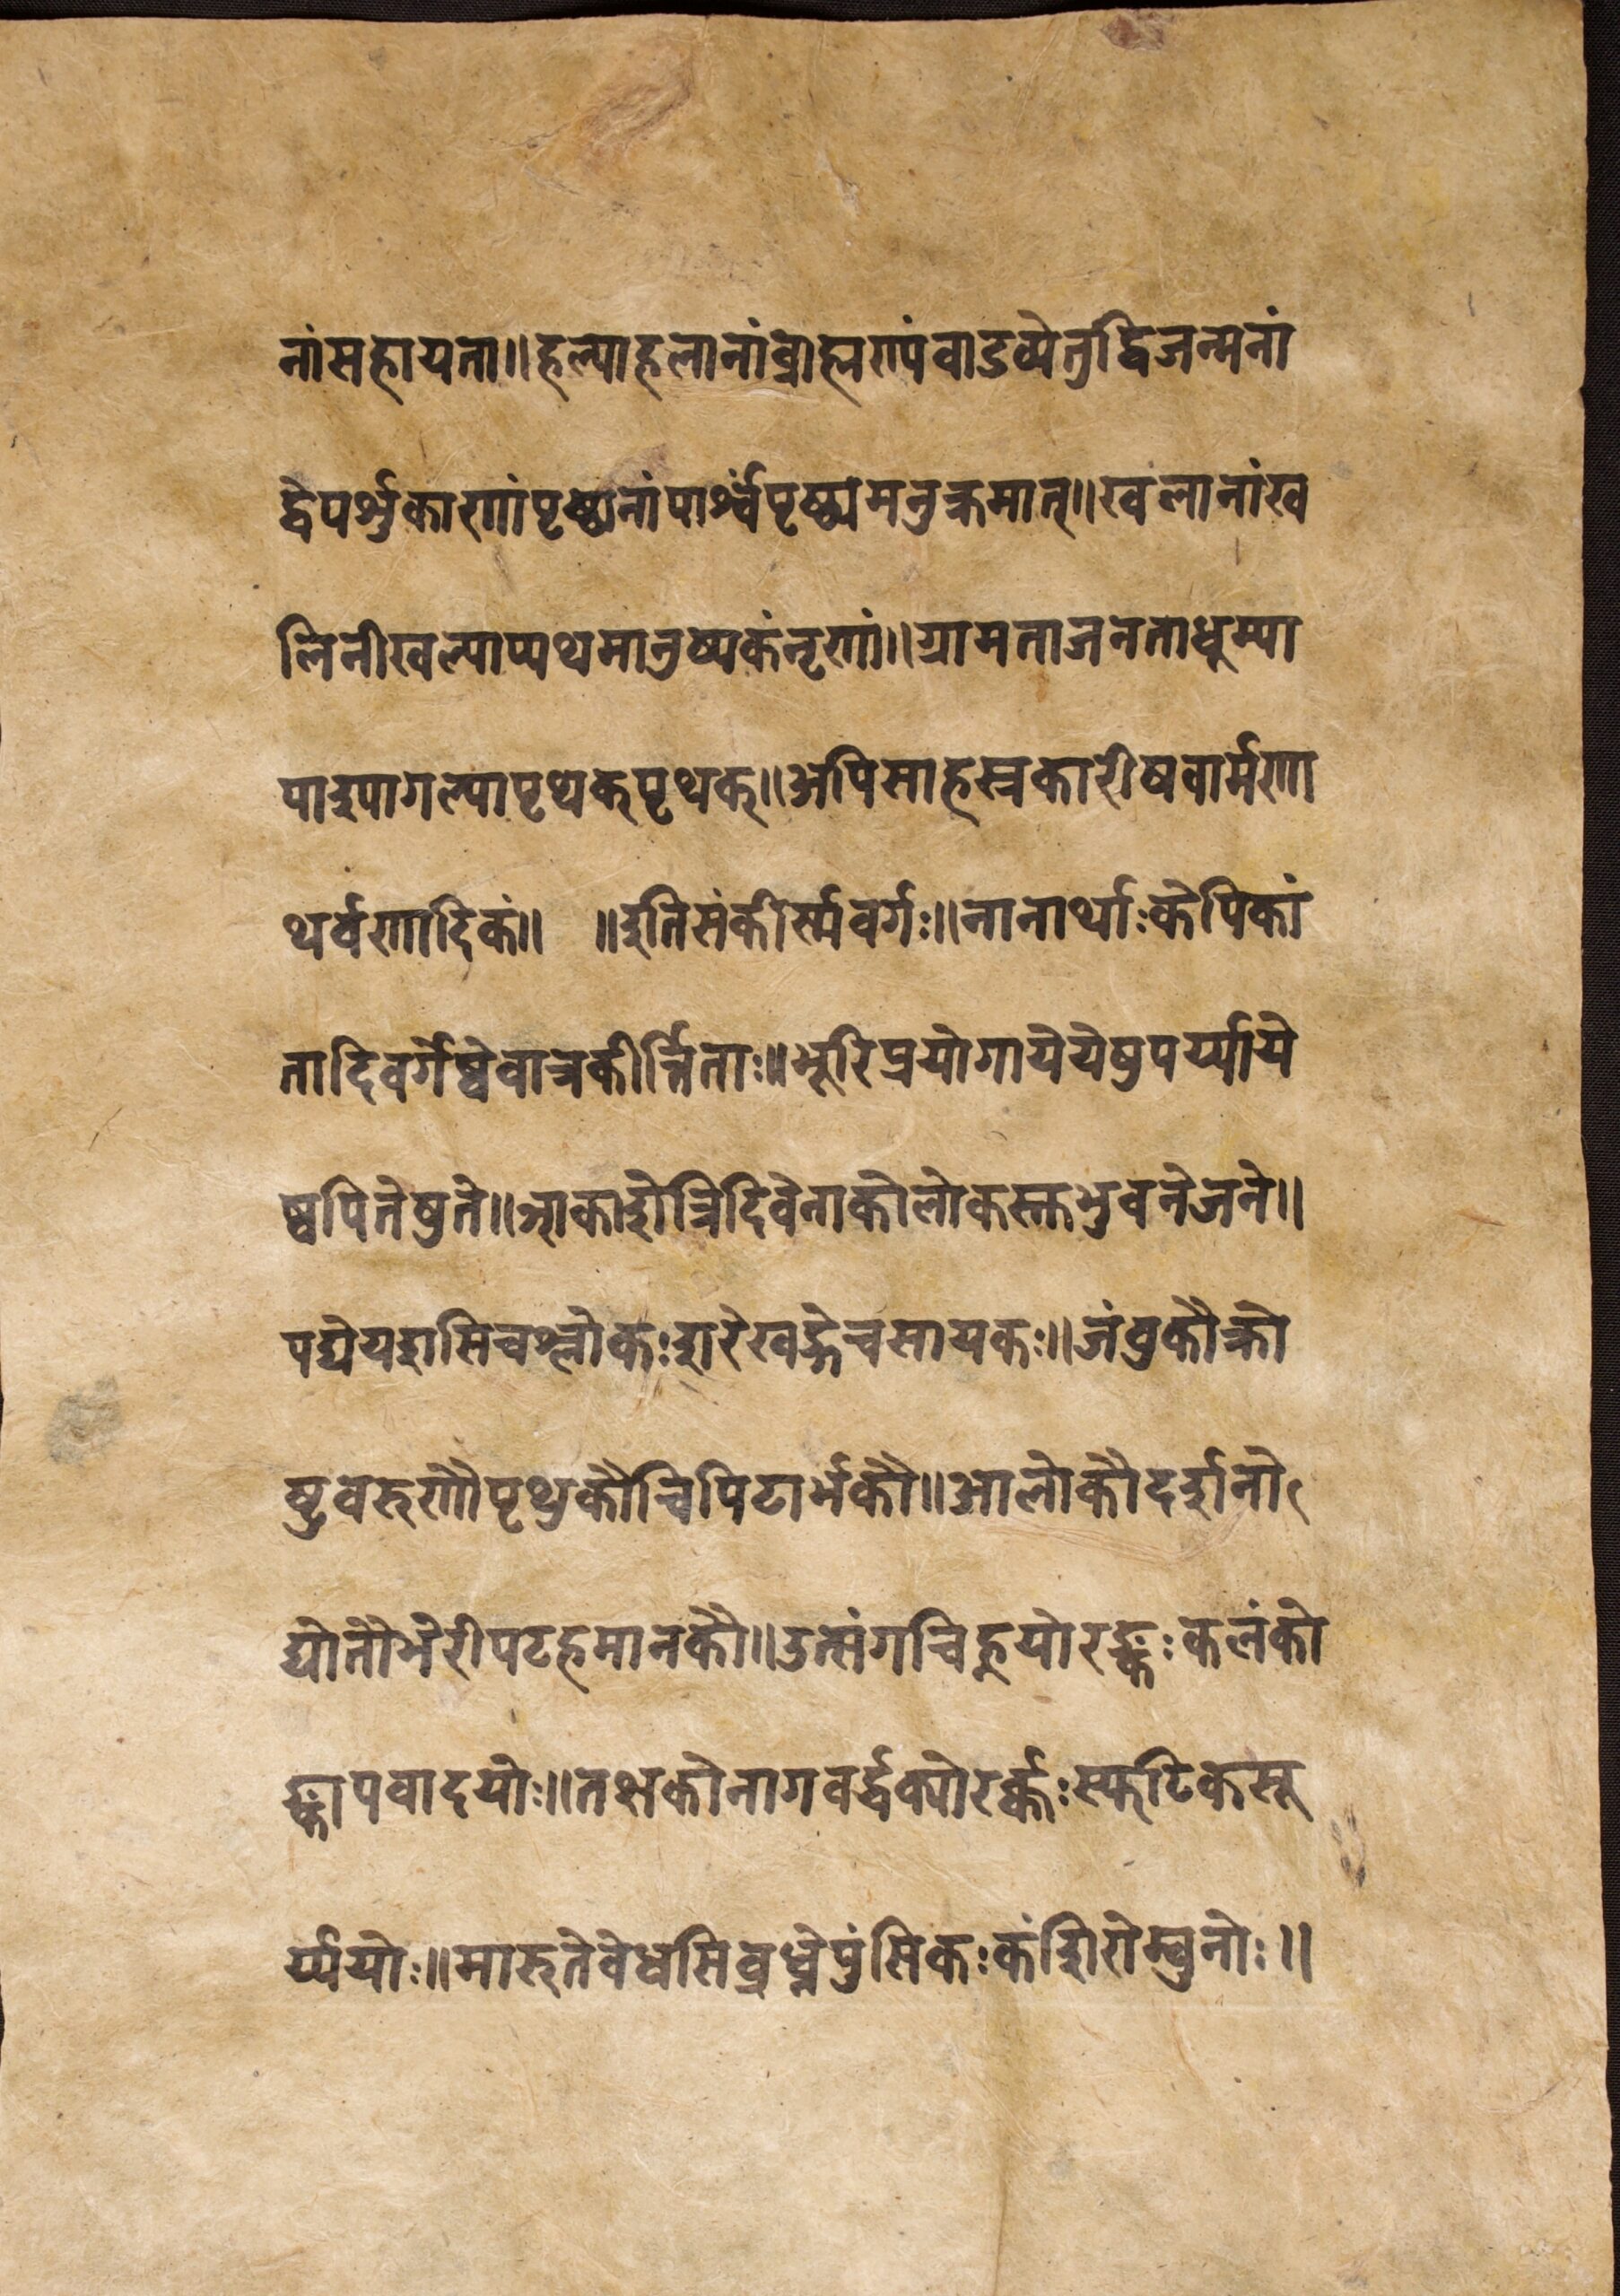 नांसहायता॥हल्याहलानांब्राह्मण्यंवाडव्येतुद्विजन्मनां
द्वेपर्शुकाराणांपृष्ठानांपार्श्वंपृष्ठ्यमनुक्रमात्॥खलानांख
लिनीखल्याप्यथमानुष्यकंनृणां॥ग्रामताजनताधूम्या
पाश्यागल्यापृथक्पृथक्॥अपिसाहस्रकारीषवार्मणा
थर्वणादिकं॥ ॥इतिसंकीर्स्मवर्गः॥नानार्थाःकेपिकां
तादिवर्गेष्वेवात्रकीर्त्तिताः॥भूरिप्रयोगायेयेषुपर्य्याये
ष्वपितेषुते॥आकाशेत्रिदिवेनाकोलोकस्तुभुवनेजने॥
पद्येयशसिचश्लोकःशरेखड्गेचसायकः॥जंवुकौक्रो
ष्टुवरुणौपृथुकौचिपिटार्भकौ॥आलोकौदर्शनो
द्योतौभेरीपटहमानकौ॥उत्संगचिह्नयोरङ्कःकलंको
ङ्कापवादयोः॥तक्षकोनागवर्द्धक्योरर्क्कःस्फटिकसू
र्य्ययोः॥मारुतेवेधसिव्रध्नेपुंसिकःकंशिरोम्वुनोः॥